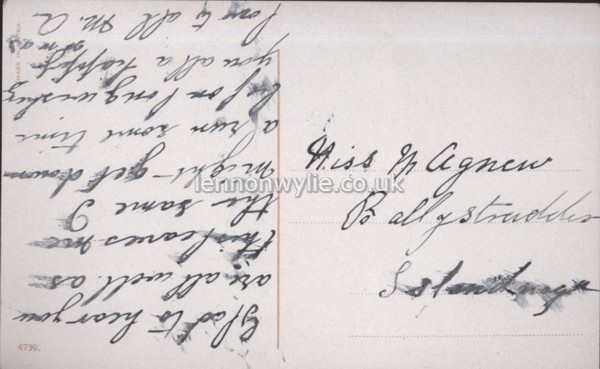 Glad to hear you
are all well as
this leaves me
the same I
might get down
a run some time
but on long wishing
you all a happy
xmas
love to all M. A
Miss M Agnew
Ballystrudder
Islandmagee
4739.
lennonwylie.co.uk